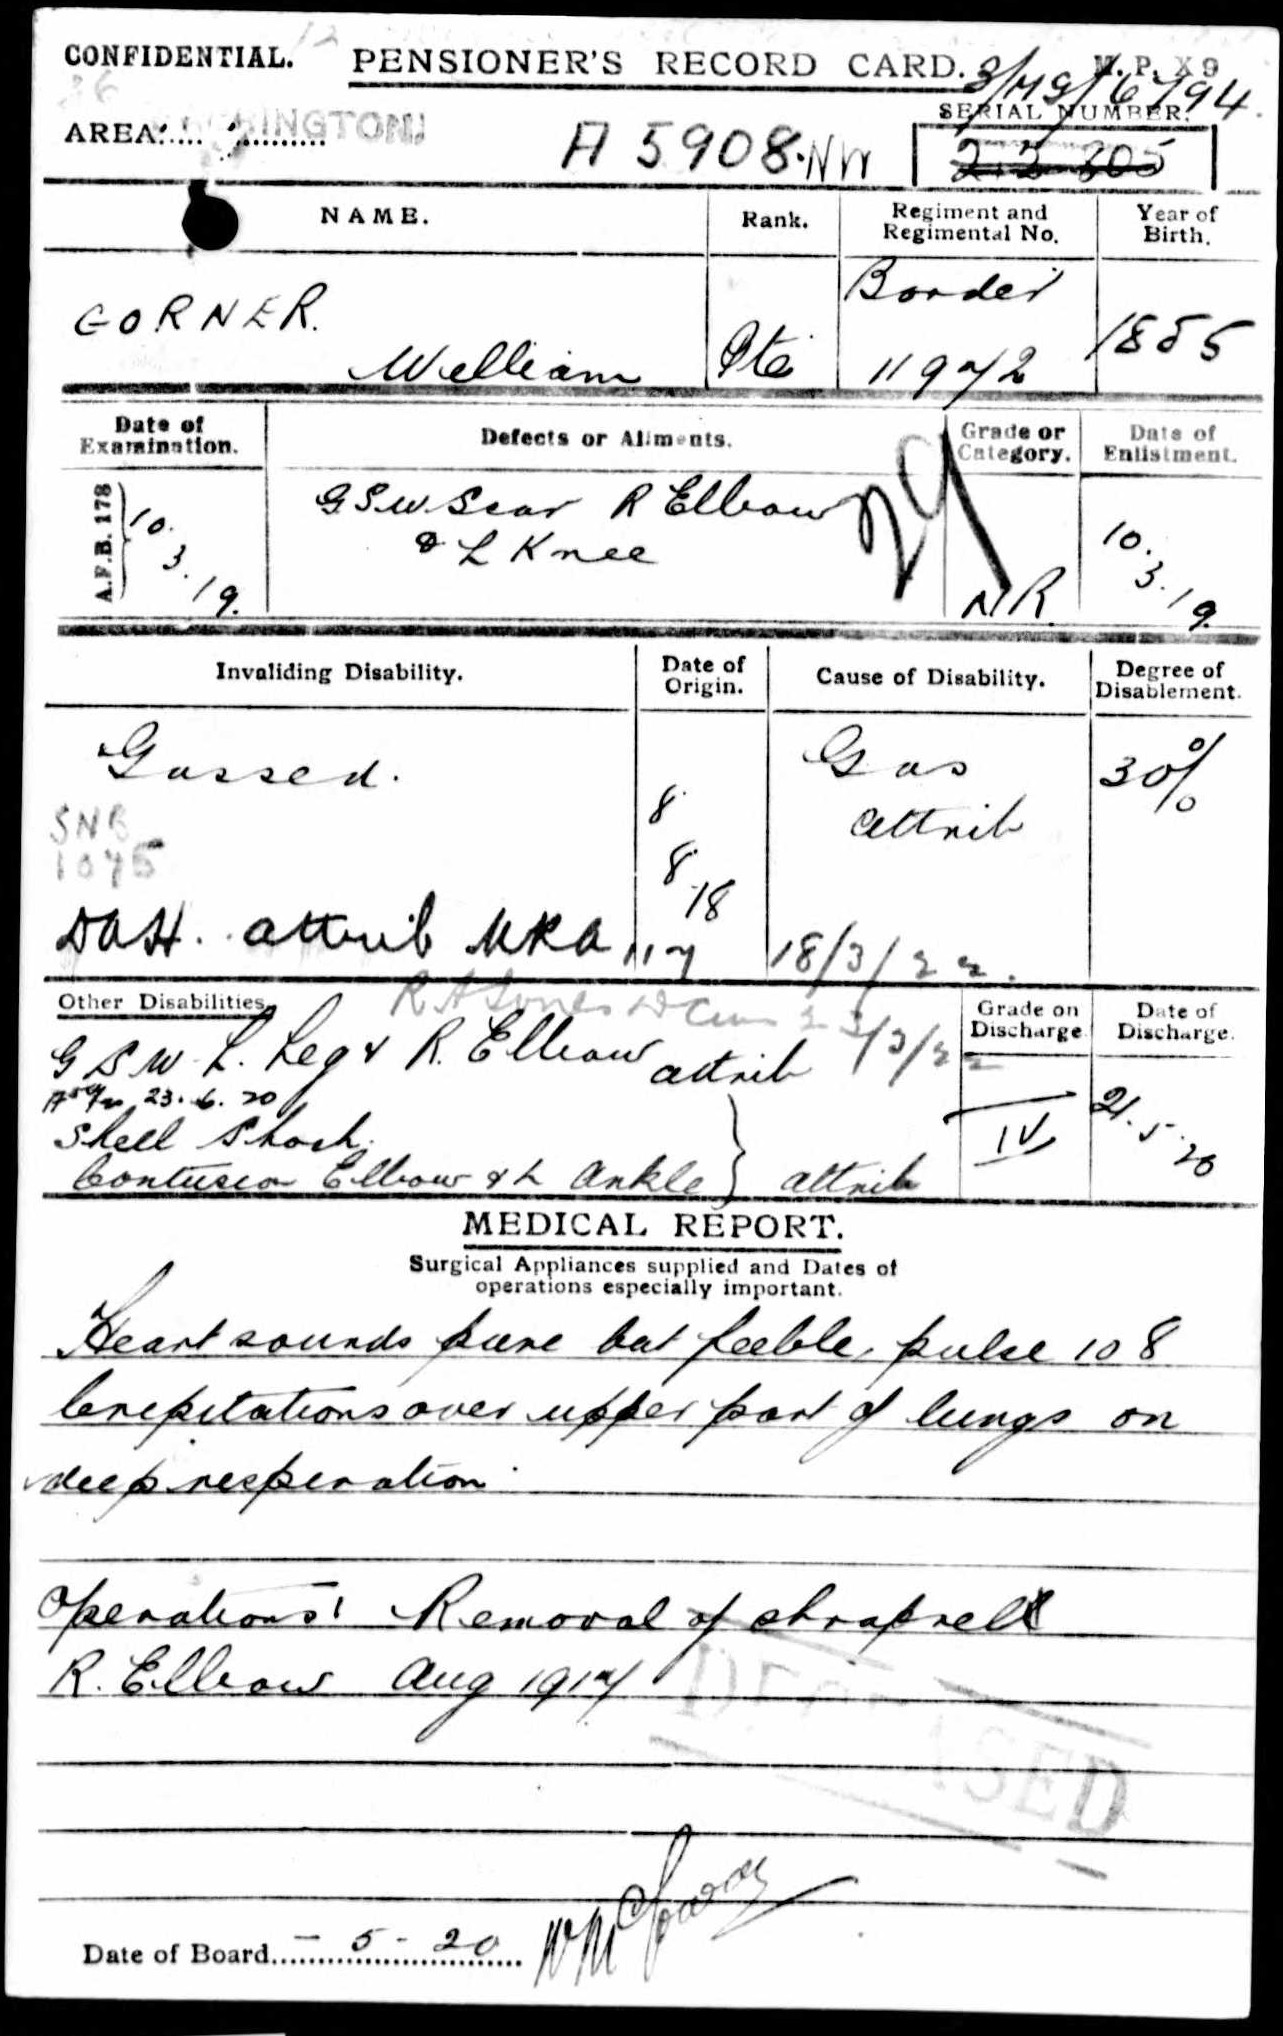 CONFIDENTIAL. PENSIONER'S RECORD CARD. M.P. X 9
3/MG/6794
AREA: A 5908. NW SERIAL NUMBER.
NAME. Rank. Regiment and Regimental No. Year of Birth.
GORNER. Border
William Pte 11972 1885
Date of Examination. Defects or Ailments. Grade or Category. Date of Enlistment.
A.F.B. 178 10.3.19. GSW Scar R Elbow 29 NR 10.3.19.
& L Knee
Invaliding Disability. Date of Origin. Cause of Disability. Degree of Disablement.
Gassed. 8.8.18 Gas 30%
attrib
SNB
1075
DAH. attrib MRA 117 18/3/22.
Other Disabilities Grade on Discharge. Date of Discharge.
GSW L. Leg & R. Elbow attrib 23/3/22
23.6.20
Shell Shock. IV 21.5.20
Contusion Elbow & L Ankle } attrib
MEDICAL REPORT.
Surgical Appliances supplied and Dates of
operations especially important.
Heart sounds pure but feeble, pulse 108
Crepitations over upper part of lungs on
deep resperation.
Operations: Removal of shrapnell
R. Elbow Aug 1917
DECEASED
Date of Board - 5 - 20